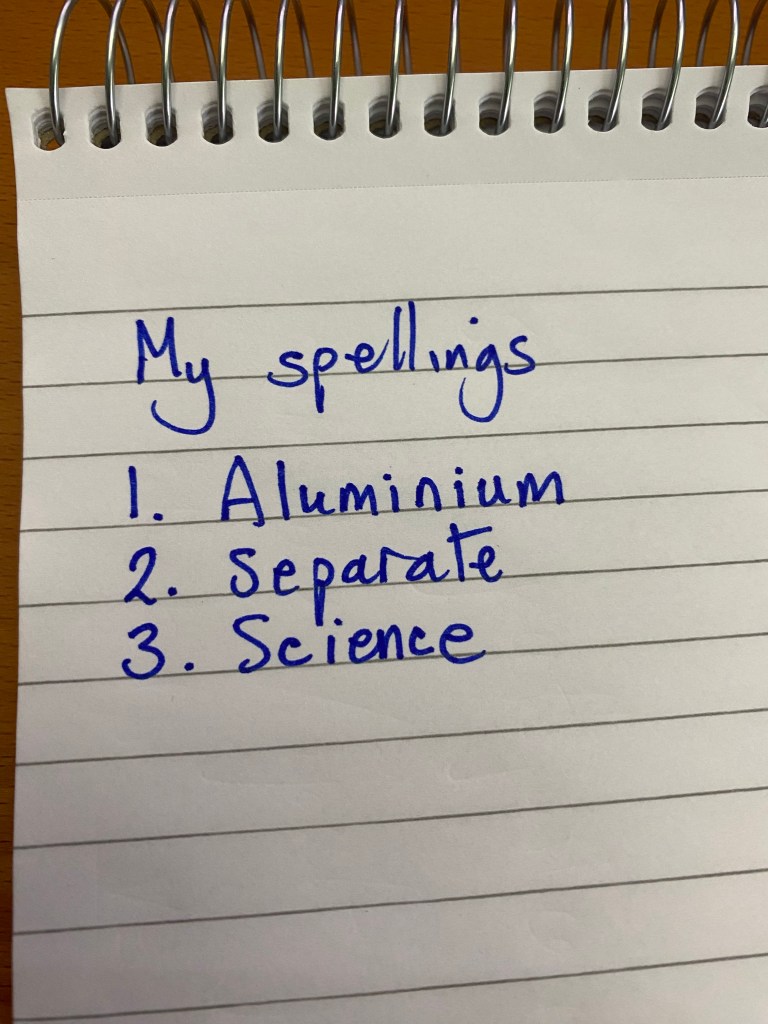 My spellings
1. Aluminium
2. Separate
3. Science